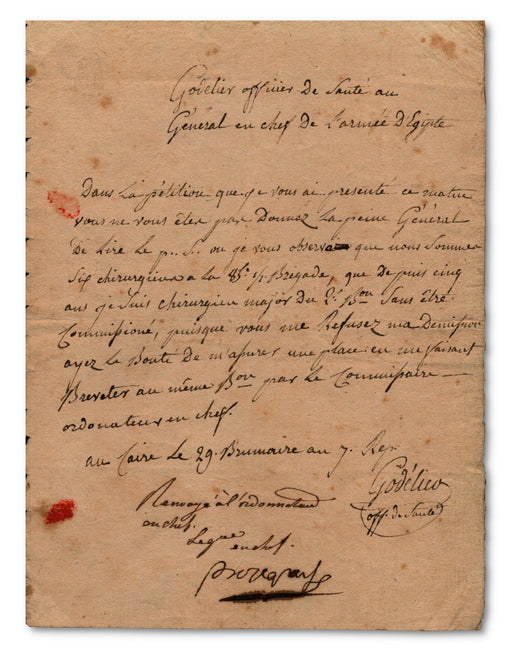 Godelier officier De Santé au
Général en chef De L'armée D'Egipte
Dans La pétition que je vous ai presenté ce matin
vous ne vous êtes pas Donnez La peine Général
De Lire Le p.. S.. ou je vous observe que nous Sommes
Six chirurgiens a La 85e ½ Brigade, que depuis cinq
ans je Suis chirurgien major du 2e Bon Sans être
Commissioné, puisque vous me Refusez ma Demission
ayez La Bonté De m'assurer une place en me faisant
Breveter au même Bon par Le Commissaire
ordonateur en chef.
au Caire Le 29. Brumaire an 7. Rep.
Godélier
off. de Santé
Renvoyé à l'ordonnateur
en chef.
en chef.